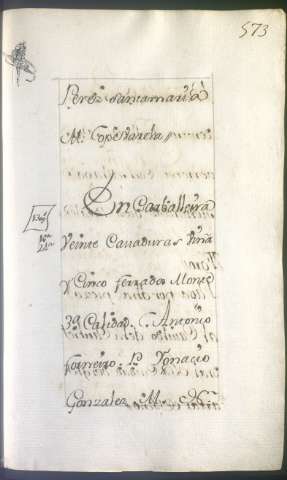 573
Perez Santamaria
M. Lope Varela
En Carballeira
Veinte Cavaduras Viña
y Cinco Ferrados Monte
3ª Calidad. L. Antonio
Forneiro. P. Ignacio
Gonzalez M.